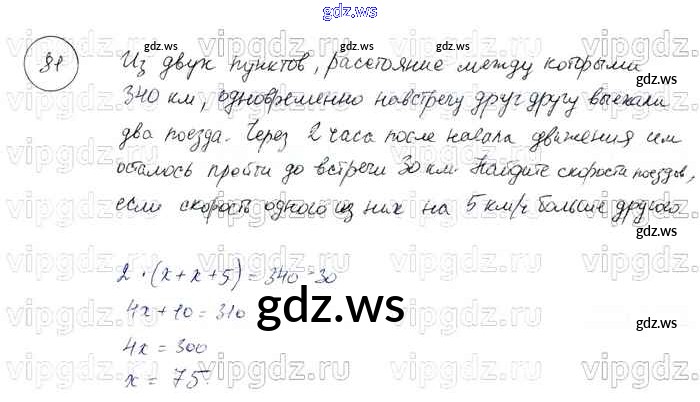 gdz.ws
81 Из двух пунктов, расстояние между которыми
340 км, одновременно навстречу друг другу выехали
два поезда. Через 2 часа после начала движения им
осталось пройти до встречи 30 км. Найдите скорости поездов,
если скорость одного из них на 5 км/ч больше другого
2 · (x + x + 5) = 340 - 30
4x + 10 = 310
4x = 300
x = 75
gdz.ws